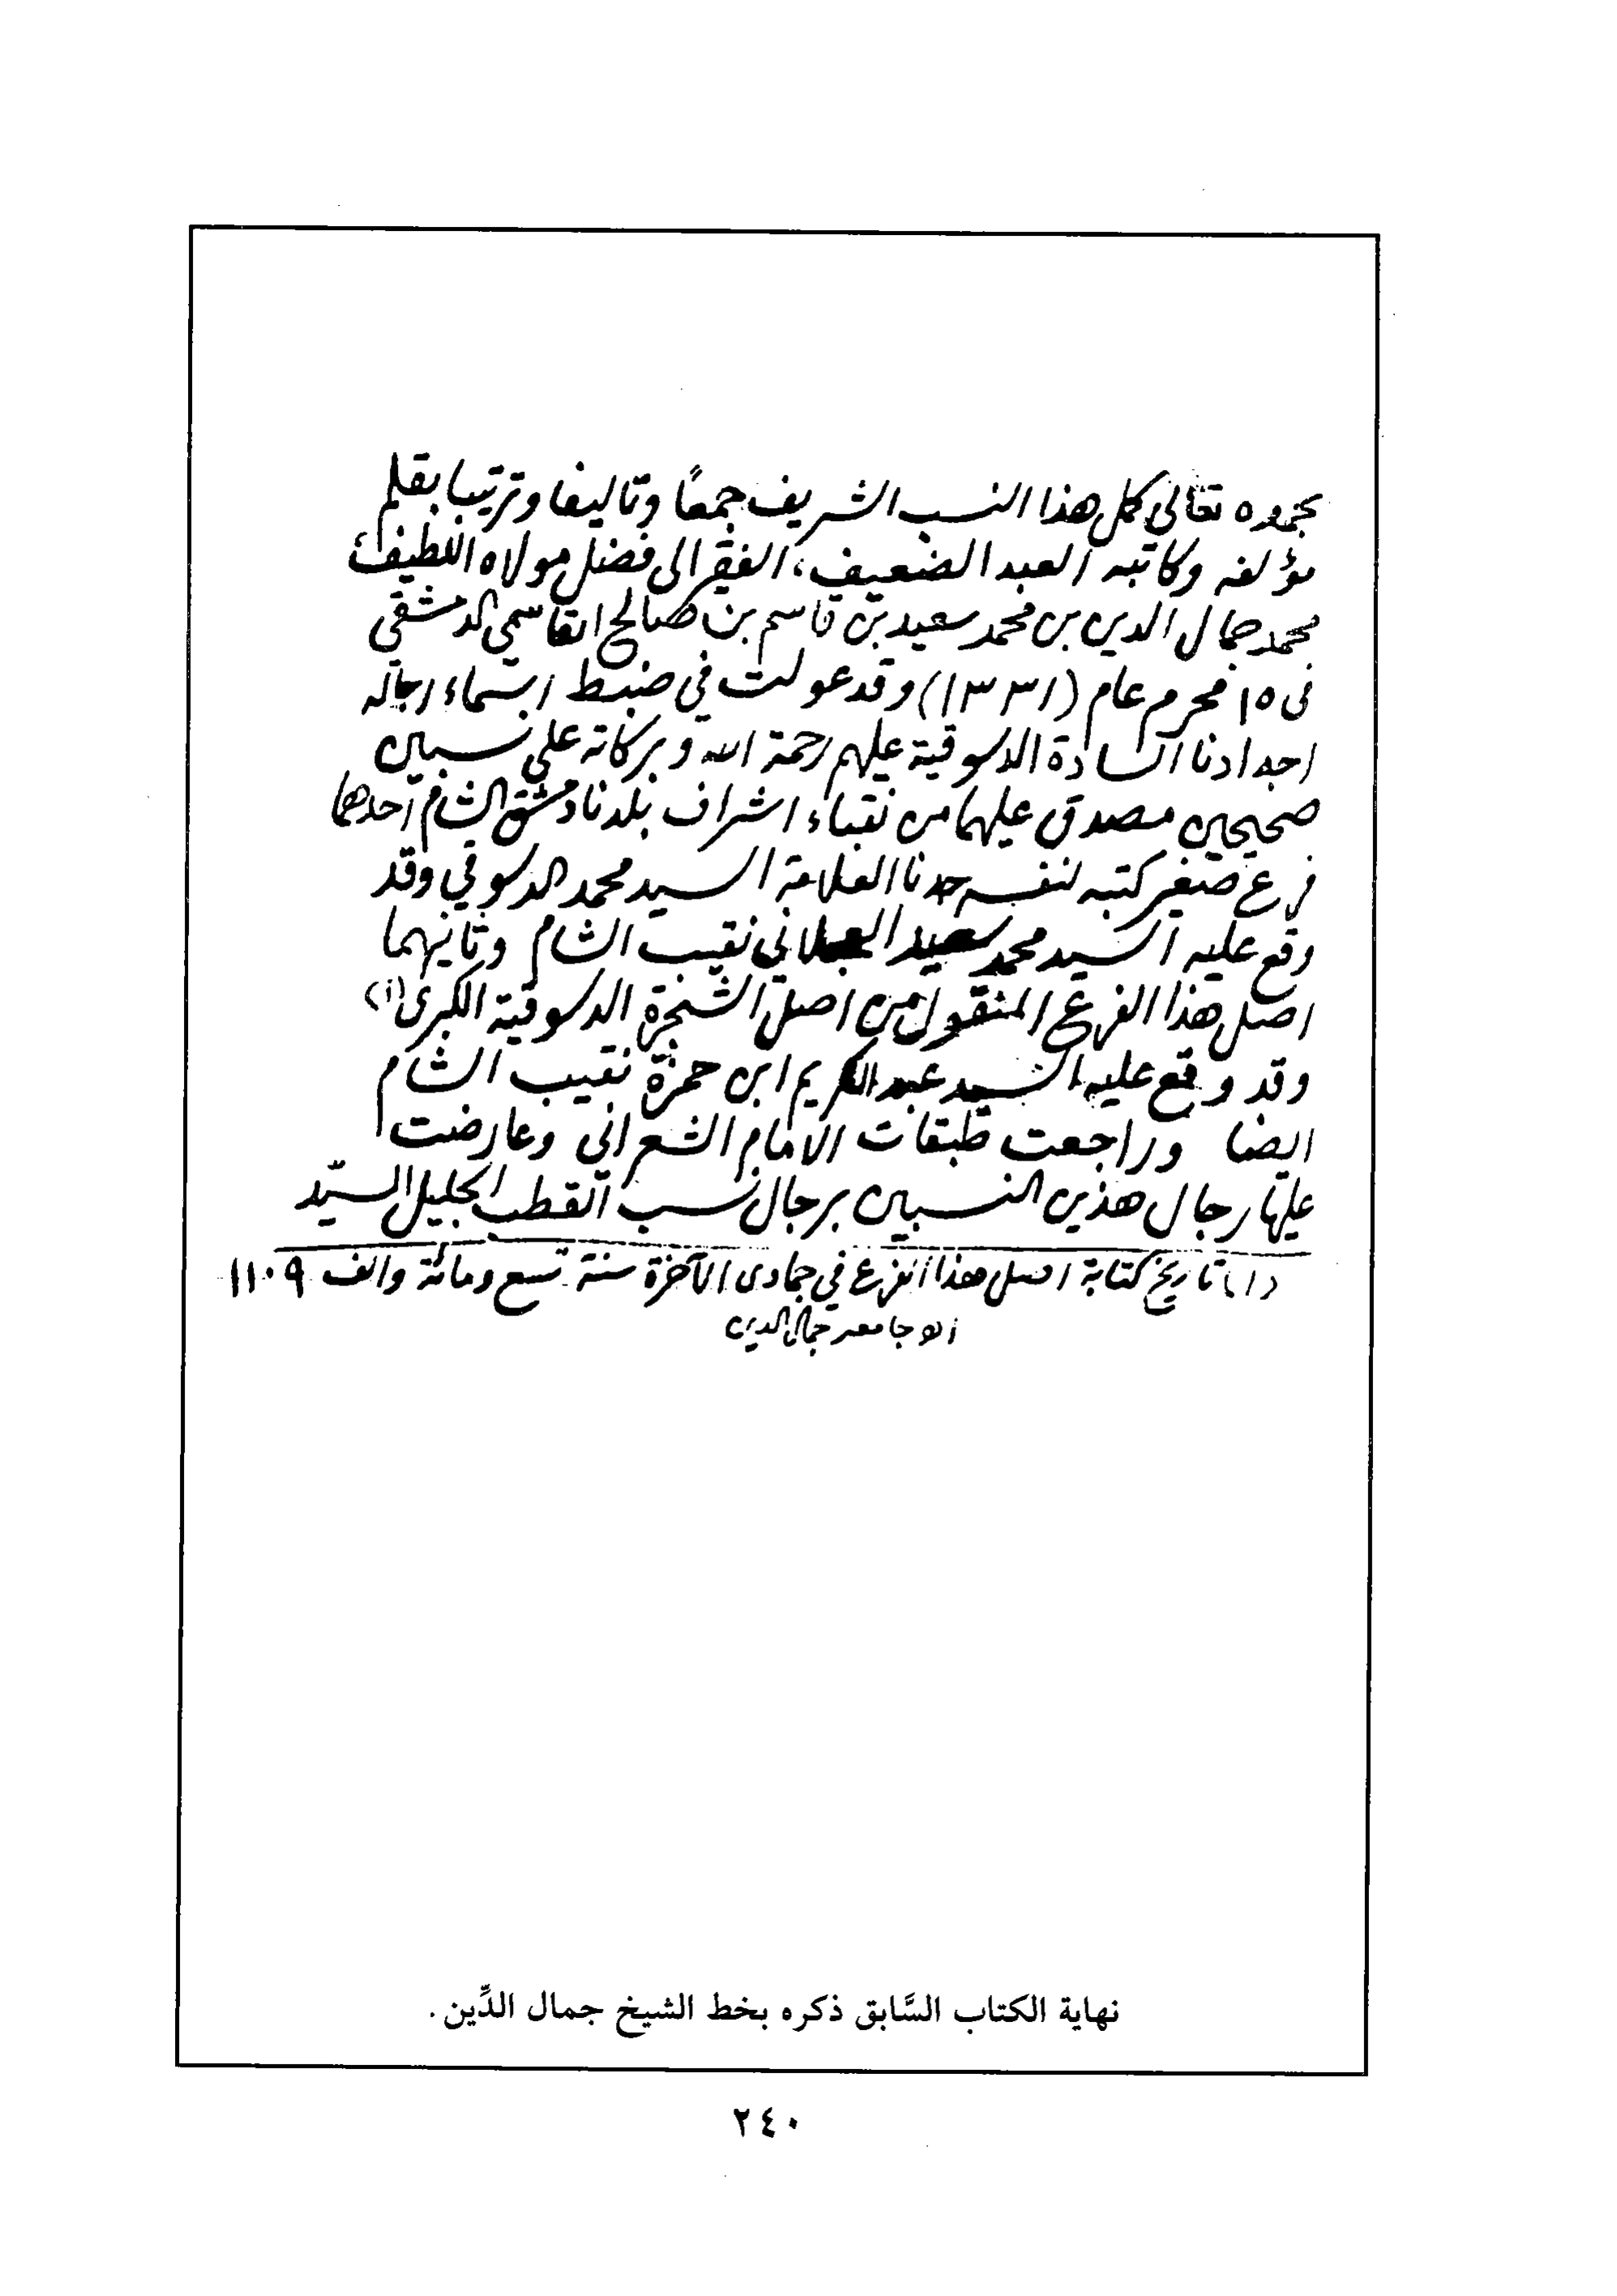 بحموده تعالى كمل هذا النسب الشريف جمعًا وتاليفا وترتيبا بقلم
مؤلفه وكاتبه العبد الضعيف، الفقير الى فضل مولاه اللطيف
محمد جمال الدين بن محمد سعيد بن قاسم بن صالح القاسمي الدمشقي
في ١٥ محرم عام (١٣٣١) وقد عولت في ضبط اسماء رجاله
اجدادنا السادة الدسوقية عليهم رحمة الله وبركاته على نسبين
صحيحين مصدق عليهما من نقباء اشراف بلدنا دمشق الشام احدهما
فرع صغير كتبه لنفسه جدنا العلامة السيد محمد الدسوقي وقد
وقع عليه السيد محمد سعيد العجلاني نقيب الشام وثانيهما
اصل هذا الفرع المنقول من اصل الشجرة الدسوقية الكبرى (١)
وقد وقع عليه السيد عبد الكريم ابن حمزة نقيب الشام
ايضا وراجعت طبقات الامام الشعراني وعارضت
عليها رجال هذين النسبين برجال نسب القطب الجليل السيّد
(١) تاريخ كتابة اصل هذا الفرع في جمادى الآخرة سنة تسع ومائة والف ١١٠٩
اهـ جامعه جمال الدين
نهاية الكتاب السَّابق ذكره بخط الشيخ جمال الدِّين.
٢٤٠